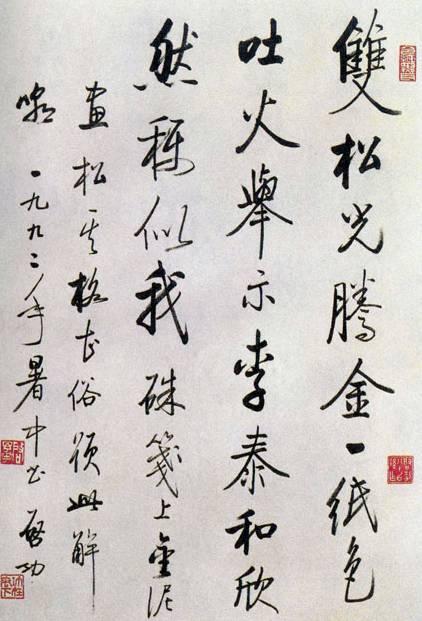 雙松光騰金一紙色
吐火舉示李泰和欣
然稱似我 硃箋上金泥
畫松其格甚俗須此解
嘲 一九九二年暑中書 啟功